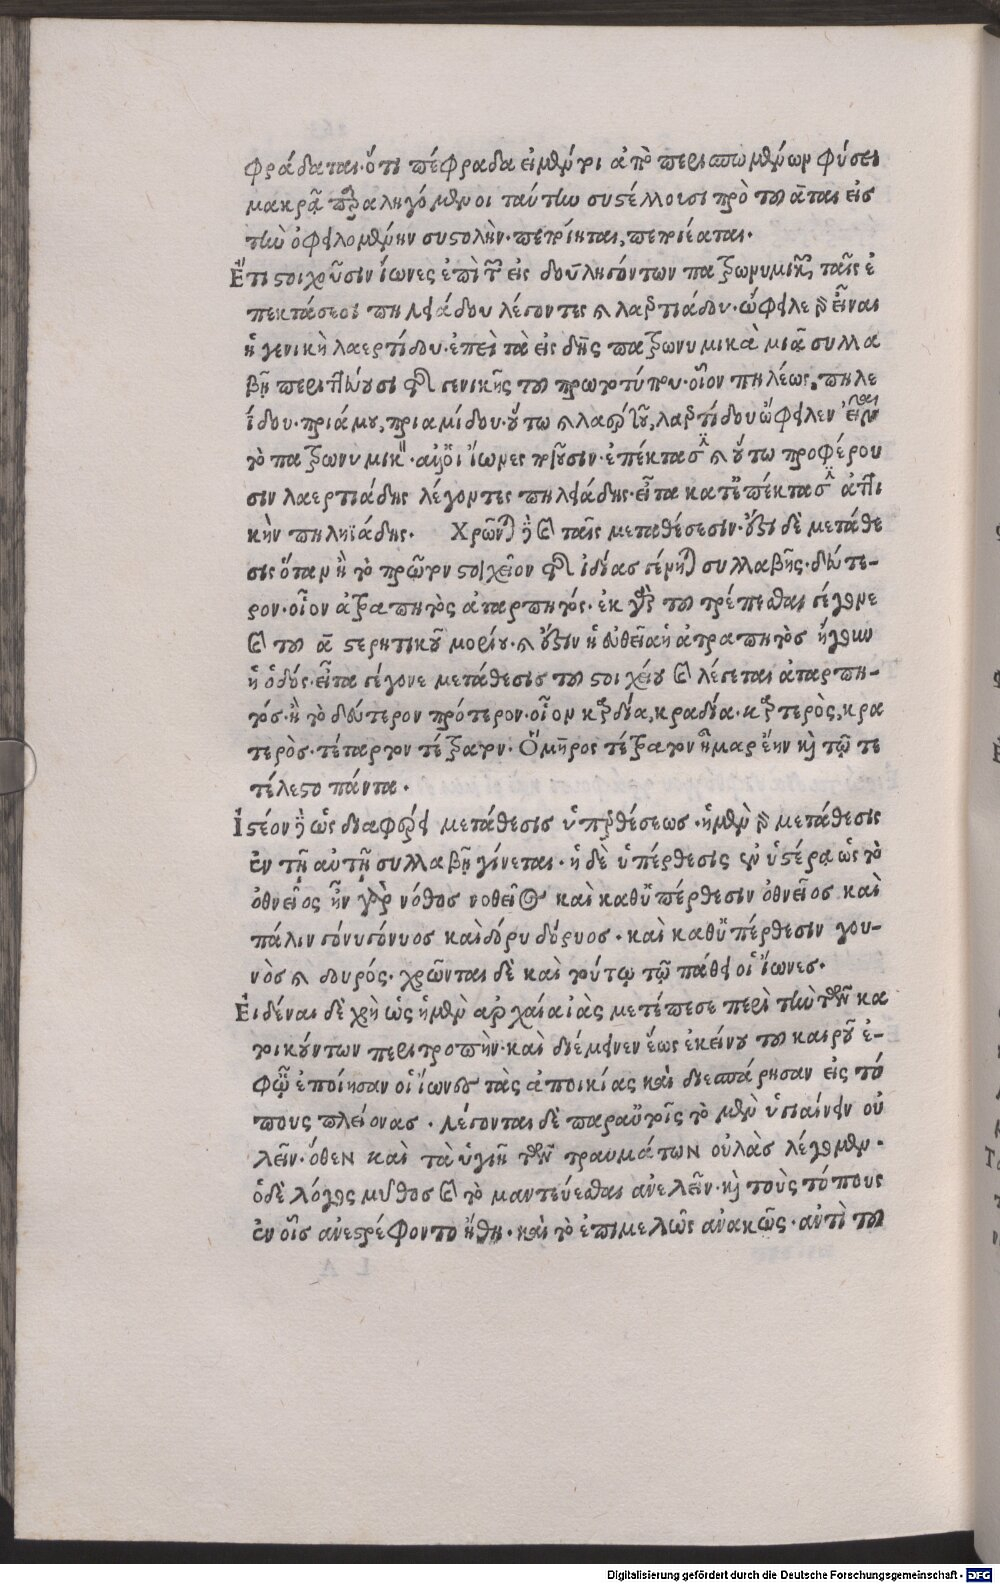 φράδαται· ὅτι πέφραδα εἰμὶ· οἱ ἀπὸ περισπωμένων φύσει
μακρᾷ παραληγόμενοι ταύτην συστέλλουσι πρὸ τοῦ ᾱται εἰς
τὴν ὀφειλομένην συστολήν· πεποίηται, πεποιέαται.
Ἔτι στοιχοῦσιν ἴωνες ἐπὶ τῶν εἰς δου ληγόντων πατρωνυμικῶν ταῖς ἐ
πεκτάσεσι πηλειάδου λέγοντες καὶ λαερτιάδου· ὤφειλε γὰρ εἶναι
ἡ γενικὴ λαερτίδου· ἐπεὶ τὰ εἰς δης πατρωνυμικὰ μιᾷ συλλα
βῇ περιττεύουσι τῆς γενικῆς τοῦ πρωτοτύπου· οἷον πηλέως, πηλε
ίδου· πριάμου, πριαμίδου· οὕτω καὶ λαέρτου, λαερτίδου ὤφειλεν εἶναι
τὸ πατρωνυμικόν· ἀλλ' οἱ ἴωνες ποιοῦσιν· ἐπέκτασιν καὶ οὕτω προφέρου
σιν λαερτιάδης λέγοντες πηλειάδης· εἶτα κατ' ἐπέκτασιν ἀττι
κὴν πηληϊάδης. Χρῶνται δὲ καὶ ταῖς μεταθέσεσιν· ἔστι δὲ μετάθε
σις ὅταν ἢ τὸ πρῶτον στοιχεῖον τῆς ἰδίας γένηται συλλαβῆς· δεύτε-
ρον· οἷον ἀτραπητὸς ἀταρπητός· ἐκ γὰρ τοῦ τρέπεσθαι γέγονε
καὶ τοῦ ᾱ στερητικοῦ μορίου· καὶ ἔστιν ἡ εὐθεῖα ἡ ἀτραπητὸς ἤγουν
ἡ ὁδός· εἶτα γέγονε μετάθεσις τοῦ στοιχείου καὶ λέγεται ἀταρπη-
τός· ἢ τὸ δεύτερον πρότερον· οἷον καρδία, κραδία· καρτερὸς, κρα
τερὸς· τέταρτον τέτρατον. Ὅμηρος τέτρατον ἦμαρ ἔην καὶ τῷ τε
τέλεστο πάντα.
Ἰστέον δὲ ὡς διαφέρει μετάθεσις ὑπερθέσεως· ἡ μὲν γὰρ μετάθεσις
ἐν τῇ αὐτῇ συλλαβῇ γίνεται· ἡ δὲ ὑπέρθεσις ἐν ὑστέρᾳ ὡς τὸ
ὀθνεῖος ἦν γὰρ νόθος νοθεῖος καὶ καθ' ὑπέρθεσιν ὀθνεῖος καὶ
πάλιν γόνυ γόνυος καὶ δόρυ δόρυος· καὶ καθ' ὑπέρθεσιν γου-
νὸς καὶ δουρός· χρῶνται δὲ καὶ τούτῳ τῷ πάθει οἱ ἴωνες.
Εἰδέναι δὲ χρὴ ὡς ἡ μὲν ἀρχαία ἰὰς μετέπεσε περὶ τὴν τῶν κα
τοικούντων περιτροπὴν· καὶ διέμεινεν ἕως ἐκείνου τοῦ καιροῦ ἐ-
φ' ᾧ ἐποίησαν οἱ ἴωνες τὰς ἀποικίας καὶ διεσπάρησαν εἰς τό
πους πλείονας. λέγονται δὲ παρ' αὐτοῖς τὸ μὲν ὑγιαίνειν οὐ
λεῖν· ὅθεν καὶ τὰ ὑγιῆ τῶν τραυμάτων οὐλὰς λέγομεν.
ὁ δὲ λόγος μῦθος καὶ τὸ μαντεύεσθαι ἀνελεῖν· καὶ τοὺς τόπους
ἐν οἷς ἀνεστρέφοντο ἤθη· καὶ τὸ ἐπιμελῶς ἀνακῶς· ἀντὶ τοῦ
Digitalisierung gefördert durch die Deutsche Forschungsgemeinschaft - DFG